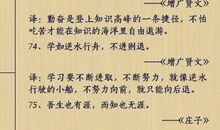 ——《增广贤文》
译：勤奋是登上知识高峰的一条捷径，不怕
吃苦才能在知识的海洋里自由遨游。
74、学如逆水行舟，不进则退。
——《增广贤文》
译：学习要不断进取，不断努力，就像逆水
行驶的小船，不努力向前，就只能向后退。
75、吾生也有涯，而知也无涯。
——《庄子》